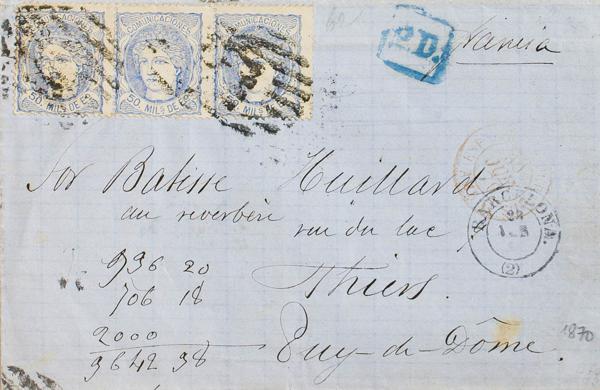 COMUNICACIONES COMUNICACIONES COMUNICACIONES
50 MILS DE E 50 MILS DE E 50 MILS DE
P.D.
Francia
Sor Batisse Huillard
au reverbère rue du lac
936 20
706 18
2000
3642 38
Thiers.
Puy-de-Dôme.
BARCELONA.
24
(2)
1870